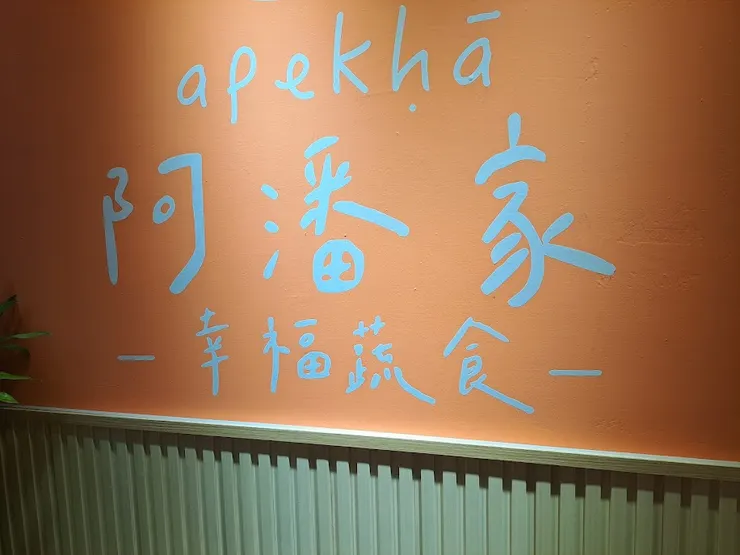 apekḥā
阿潘家
－幸福蔬食－